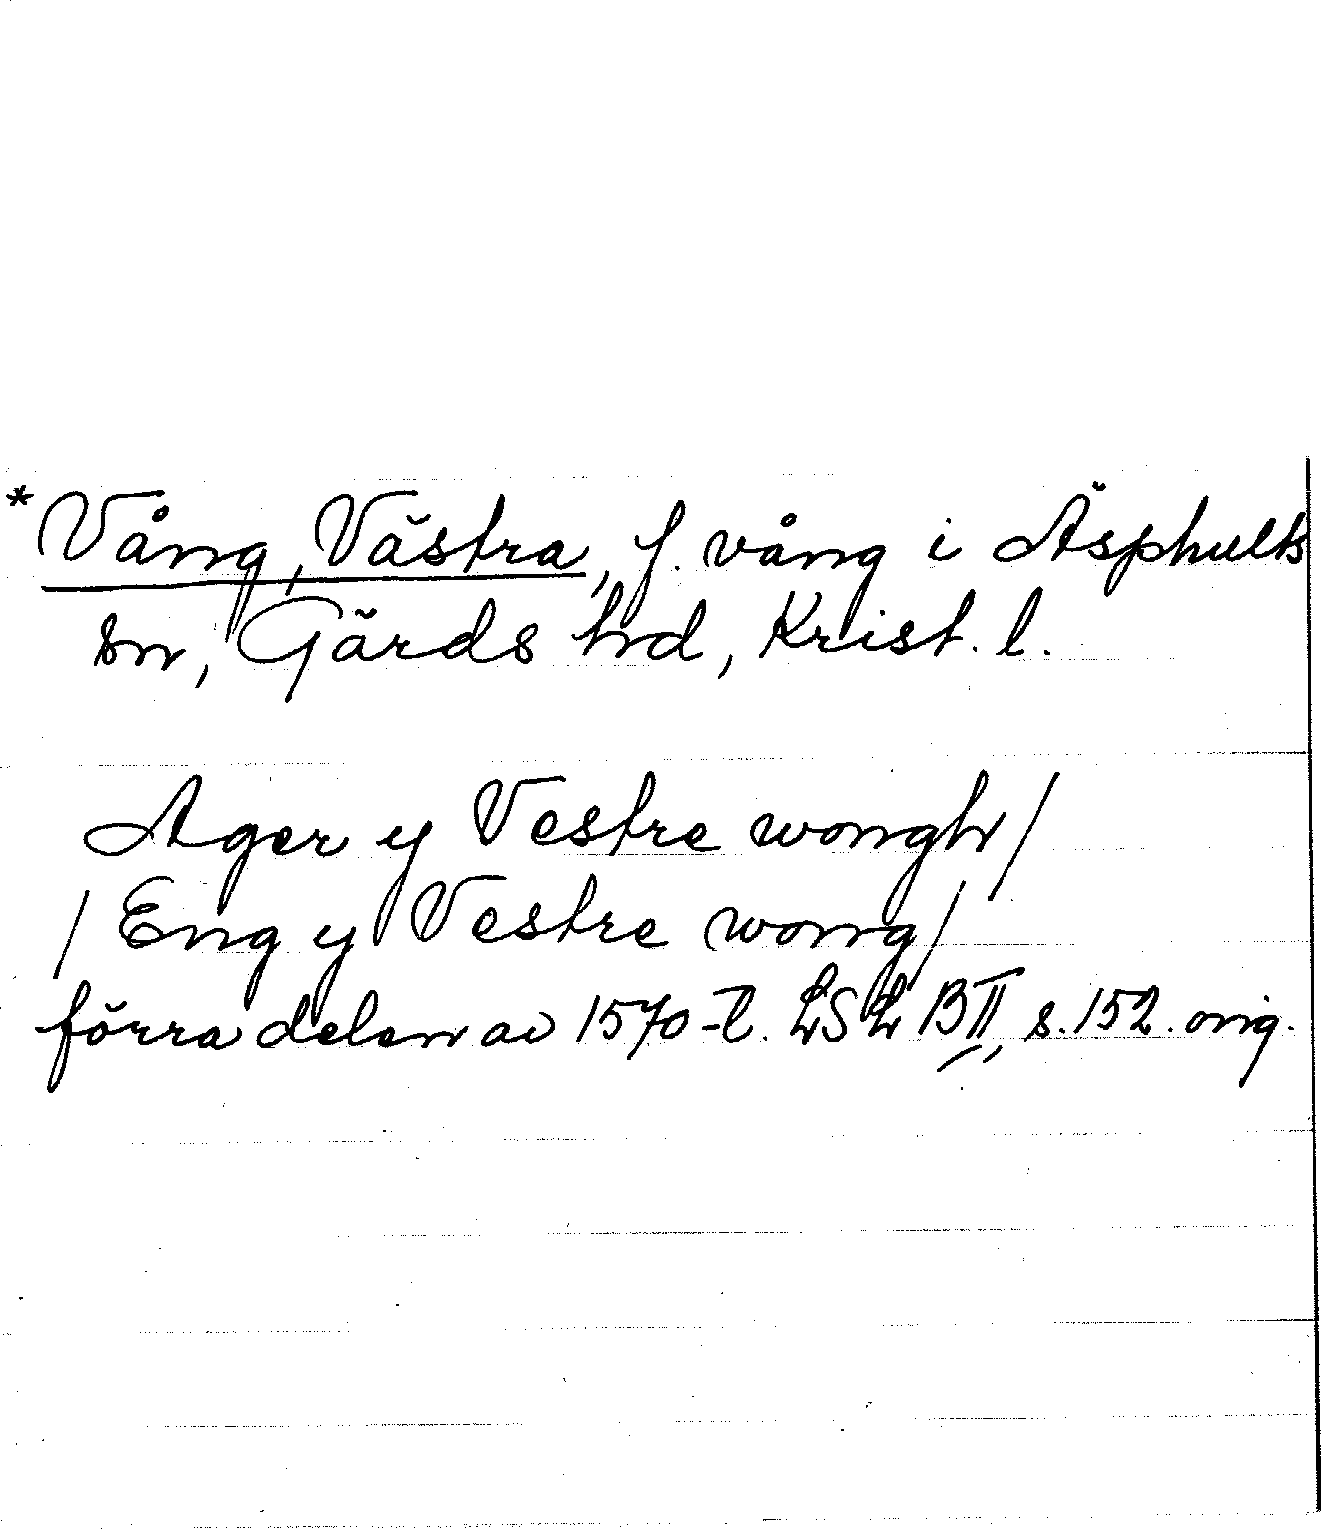 *Vång, Västra, f. vång i Äsphults
sn, Gärds hd, Krist. l.
Ager y Vestre wongh/
/Eng y Vestre wong/
förra delen av 1570-t. LSL BII, s. 152. orig.